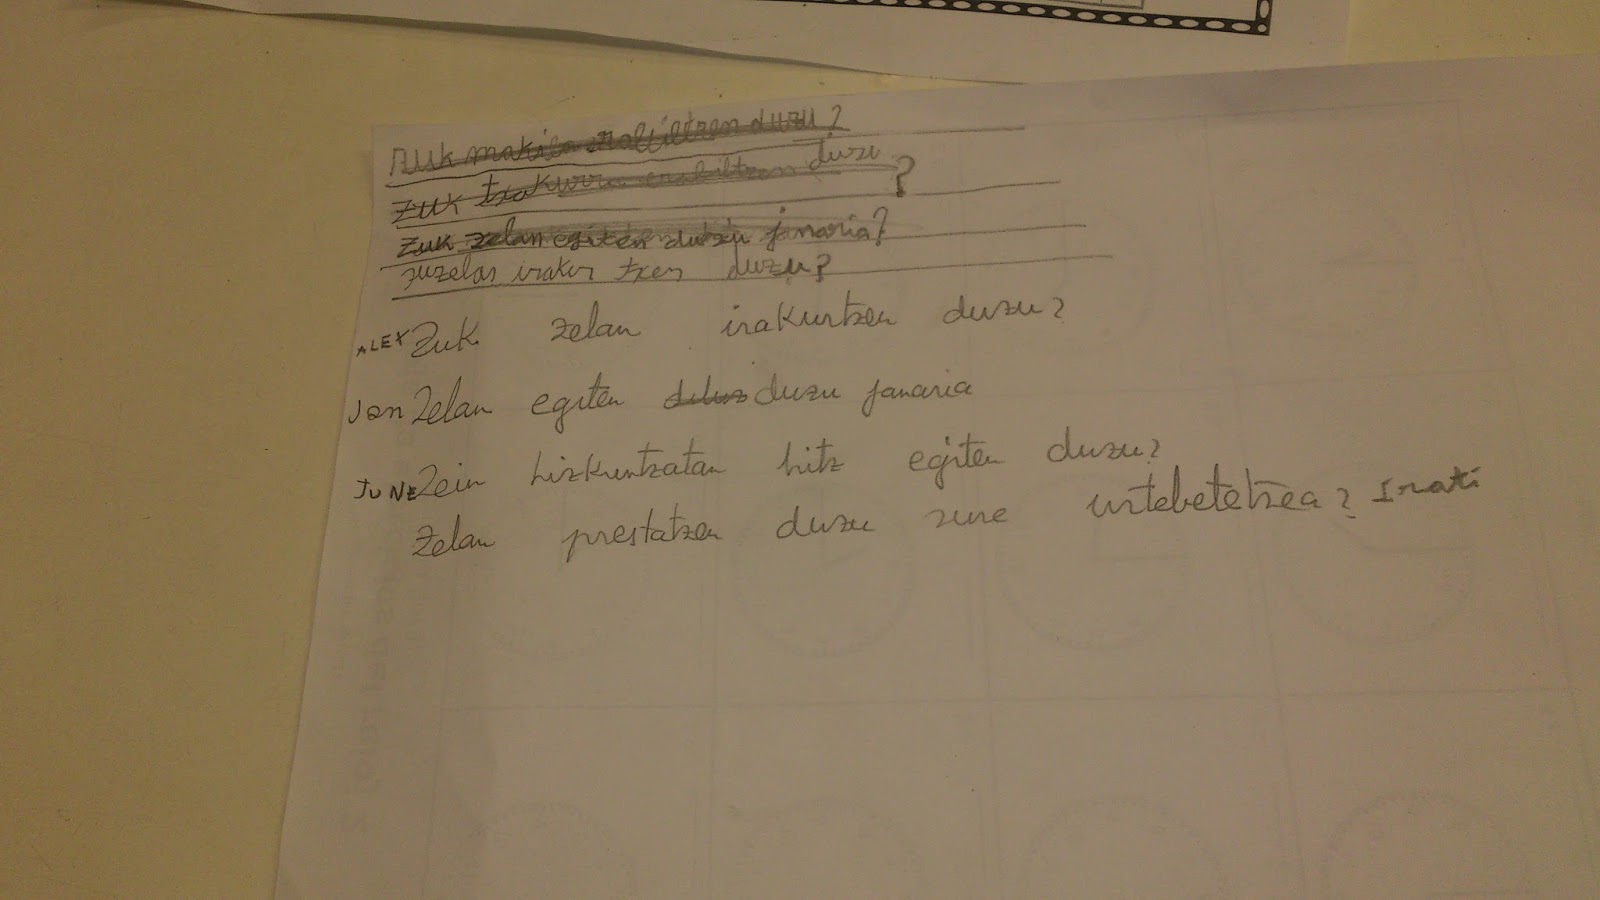 zuk makila erabiltzen duzu?
zuk txakurra erabiltzen duzu?
zuk zelan egiten duzu janaria?
zuzelas irakur txen duzu?
ALEX Zuk zelan irakurtzen duzu?
Jon Zelan egiten duzu janaria
JUNE Zein hizkuntzatan hitz egiten duzu?
Zelan prestatzen duzu zure urtebetetzea? Irati